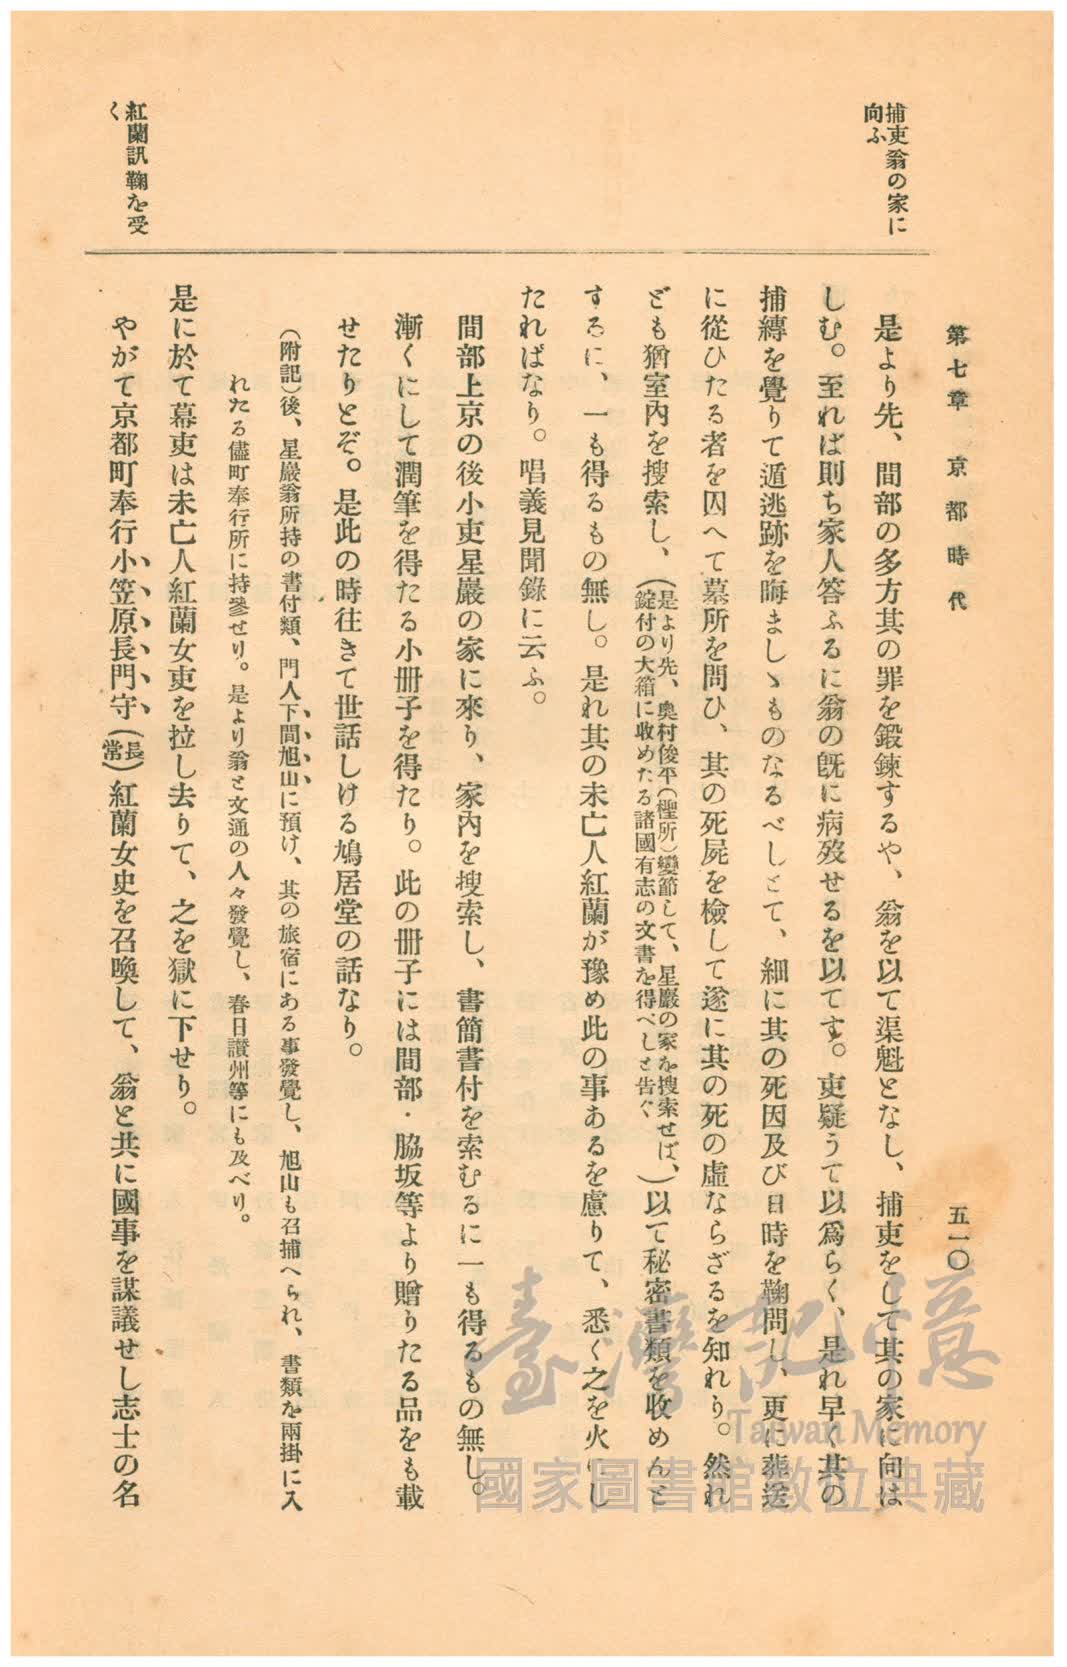 第七章 京都時代
五一〇
捕吏翁の家に
向ふ
是より先、間部の多方其の罪を鍛鍊するや、翁を以て渠魁となし、捕吏をして其の家に向は
しむ。至れば則ち家人答ふるに翁の旣に病歿せるを以てす。吏疑うて以爲らく、是れ早く其の
捕縛を覺りて遁逃跡を晦ましゝものなるべしとて、細に其の死因及び日時を鞠問し、更に葬送
に從ひたる者を囚へて墓所を問ひ、其の死屍を檢して遂に其の死の虛ならざるを知れり。然れ
ども猶室內を搜索し、(是より先、奧村俊平(櫁所)變節して、星巖の家を搜索せば、
錠付の大箱に收めたる諸國有志の文書を得べしと告ぐ)以て秘密書類を收めんと
するに、一も得るもの無し。是れ其の未亡人紅蘭が豫め此の事あるを慮りて、悉く之を火にし
たればなり。唱義見聞錄に云ふ。
間部上京の後小吏星巖の家に來り、家內を搜索し、書簡書付を索むるに一も得るもの無し。
漸くにして潤筆を得たる小冊子を得たり。此の冊子には間部・脇坂等より贈りたる品をも載
せたりとぞ。是此の時往きて世話しける鳩居堂の話なり。
(附記)後、星巖翁所持の書付類、門人下間旭山に預け、其の旅宿にある事發覺し、旭山も召捕へられ、書類を兩掛に入
れたる儘町奉行所に持參せり。是より翁と文通の人々發覺し、春日讃州等にも及べり。
紅蘭訊鞠を受
く
是に於て幕吏は未亡人紅蘭女史を拉し去りて、之を獄に下せり。
やがて京都町奉行小笠原長門守(長
常)紅蘭女史を召喚して、翁と共に國事を謀議せし志士の名
臺灣記憶
Taiwan Memory
國家圖書館數位典藏